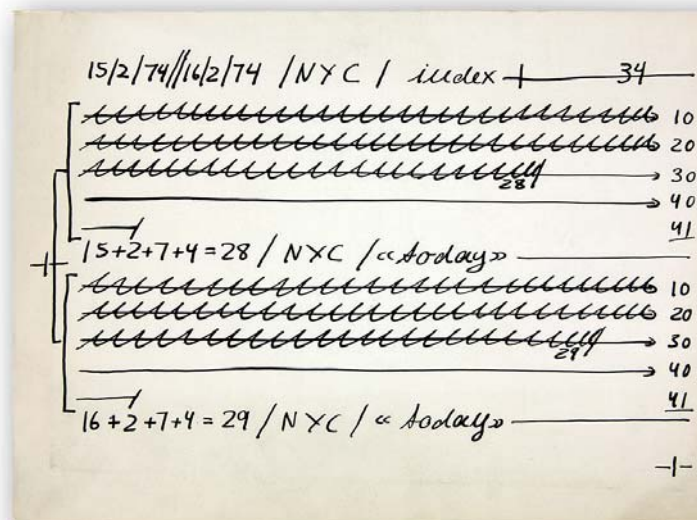 15/2/74//16/2/74 / NYC / index 34
10
20
28 30
40
41
15+2+7+4=28 / NYC / «today»
10
20
29 30
40
41
16+2+7+4=29 / NYC / «today»